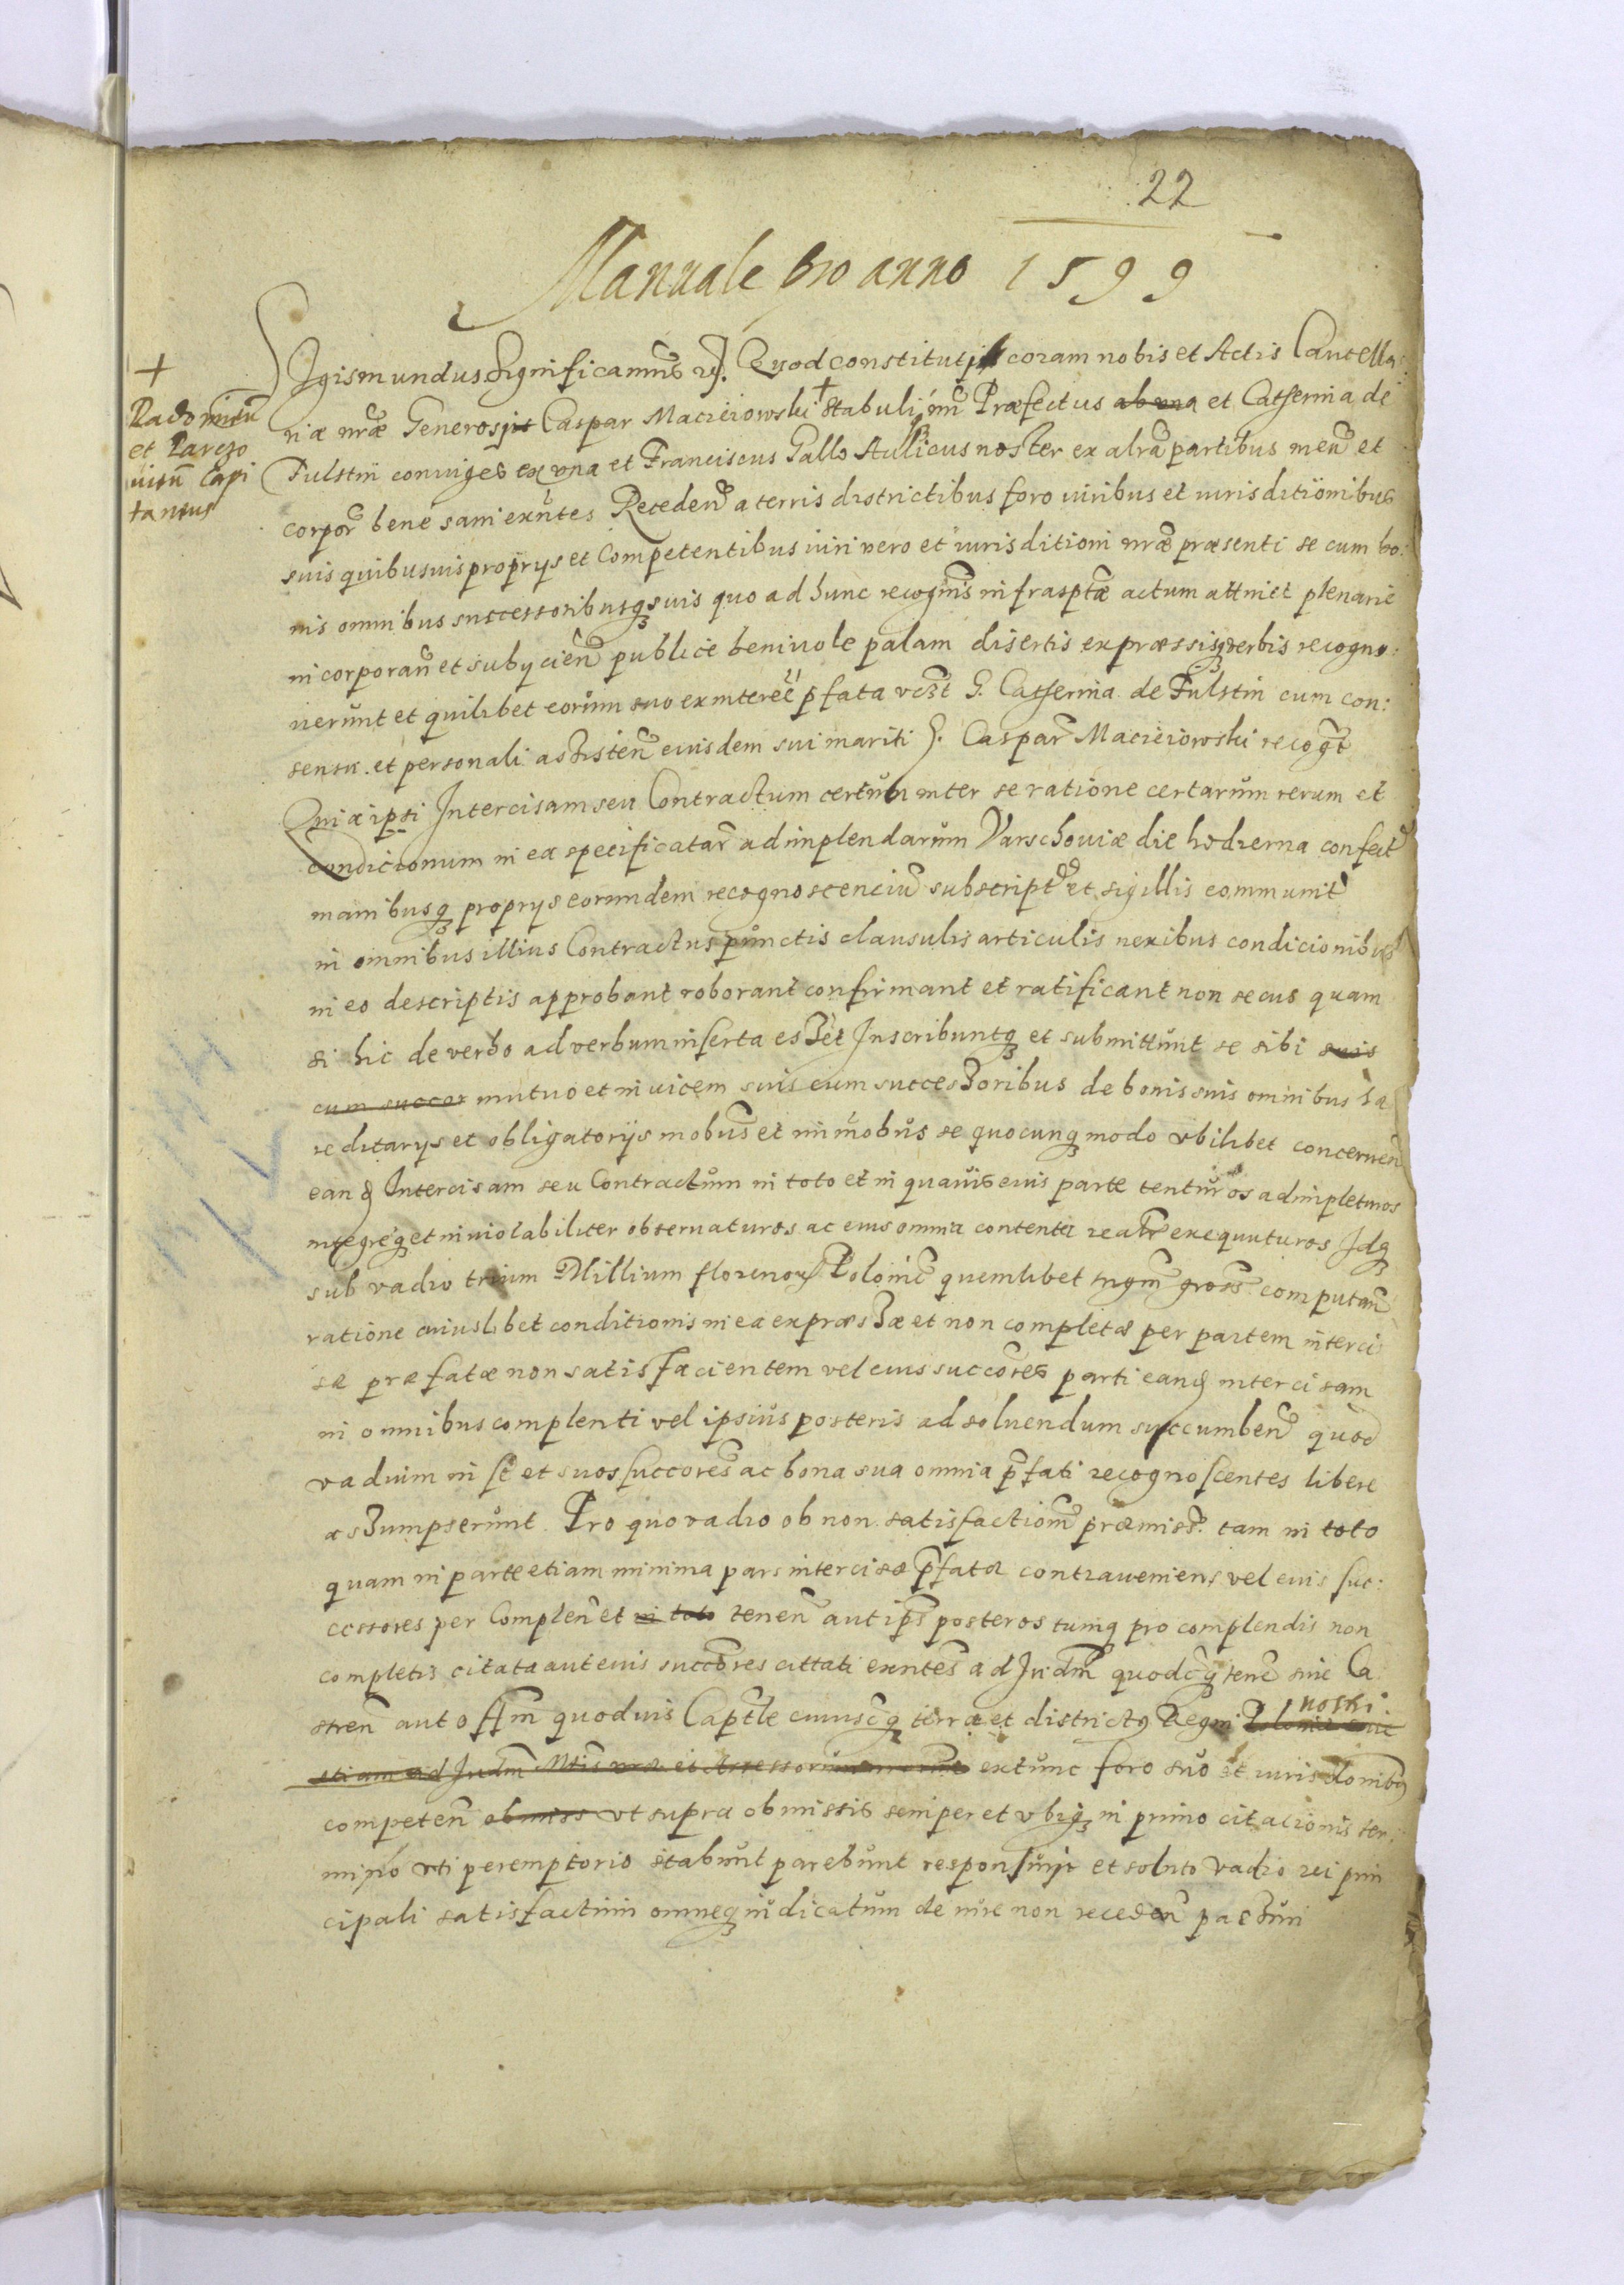 22
Manuale pro anno 1599
Sigismundus Significamus etc. Quod constituti coram nobis et Actis Cancella:
riæ nræ Generosi Caspar Macieiowski + Stabuli nri Præfectus ab una et Catherina de
+
Radomien
et Parczo
uien Capi
taneus
Fulstin coniuges ex vna et Franciscus Gallo Aullicus noster ex altra partibus men et
corpor bene sani exntes Receden a terris districtibus foro iuribus et iurisditionibus
suis quibusuis proprys et Competentibus iuri vero et iurisditioni nræ præsenti se cum bo:
nis omnibus successoribusq suis quo ad hunc recognis infrasptæ actum attinet plenarie
incorporan et subycien publice beniuole palam disertis expræssisq verbis recogno:
uerunt et quilibet eorum suo ex interee pfata vczt G. Catherina de Fulstin cum con:
sensu et personali assisten eiusdem sui mariti G. Caspar Macieiowski recogt
Quia ipsi Intercisam seu Contractum certum inter se ratione certarum rerum et
condicionum in ea specificatar adimplendarum Varschouiæ die hodierna confect
manibusq proprys eorumdem recognoscenciu subscript et sigillis communit
in omnibus illius Contractus punctis clausulis articulis nexibus condicionibus
in eo descriptis approbant roborant confirmant et ratificant non secus quam
si hic de verbo ad verbum inserta esset Inscribuntq et submittunt se sibi suis
cum succor mutuo et inuicem suis cum successoribus de bonis suis omnibus hæ
reditarys et obligatorijs mobus et immobus se quocunq modo vbilibet concernen
eand Intercisam seu Contractum in toto et in quauis eius parte tenturos adimpleturos
integreq et inuiolabiliter obseruaturos ac eius omnia contenta realr exequuturos Idq
sub vadio trium Millium florenor Polonic quemlibet trigm gross computan
ratione cuiuslibet conditionis in ea expræssæ et non completæ per partem interci
sæ præfatæ non satisfacientem vel eius succores parti eand intercisam
in omnibus complenti vel ipsius posteris ad soluendum succumben quod
vadium in se et suos succores ac bona sua omnia pfati recognoscentes libere
assumpserunt. Pro quo vadio ob non satisfactiom præmiss. tam in toto
quam in parte etiam minima pars intercisæ pfatæ contraueniens vel eius suc:
cessores per Complen et in toto tenen aut ips posteros tumq pro complendis non
completis citata aut eius succores cittati exntes ad Judm quodcq terre siue Ca
stren aut offm quoduis Captle cuiuscq terræ et districtq Regni Poloniæ nostri
etiam ad Judm Mtis nræ et Assessorum extunc foro suo et iurisdonibq
competen obmiss vt supra obmissis semper et vbiq in primo citacionis ter:
mino vti peremptorio stabunt parebunt responsuri et soluto vadio rei prin
cipali satisfacturi omneq iudicatum de iure non receden passuri